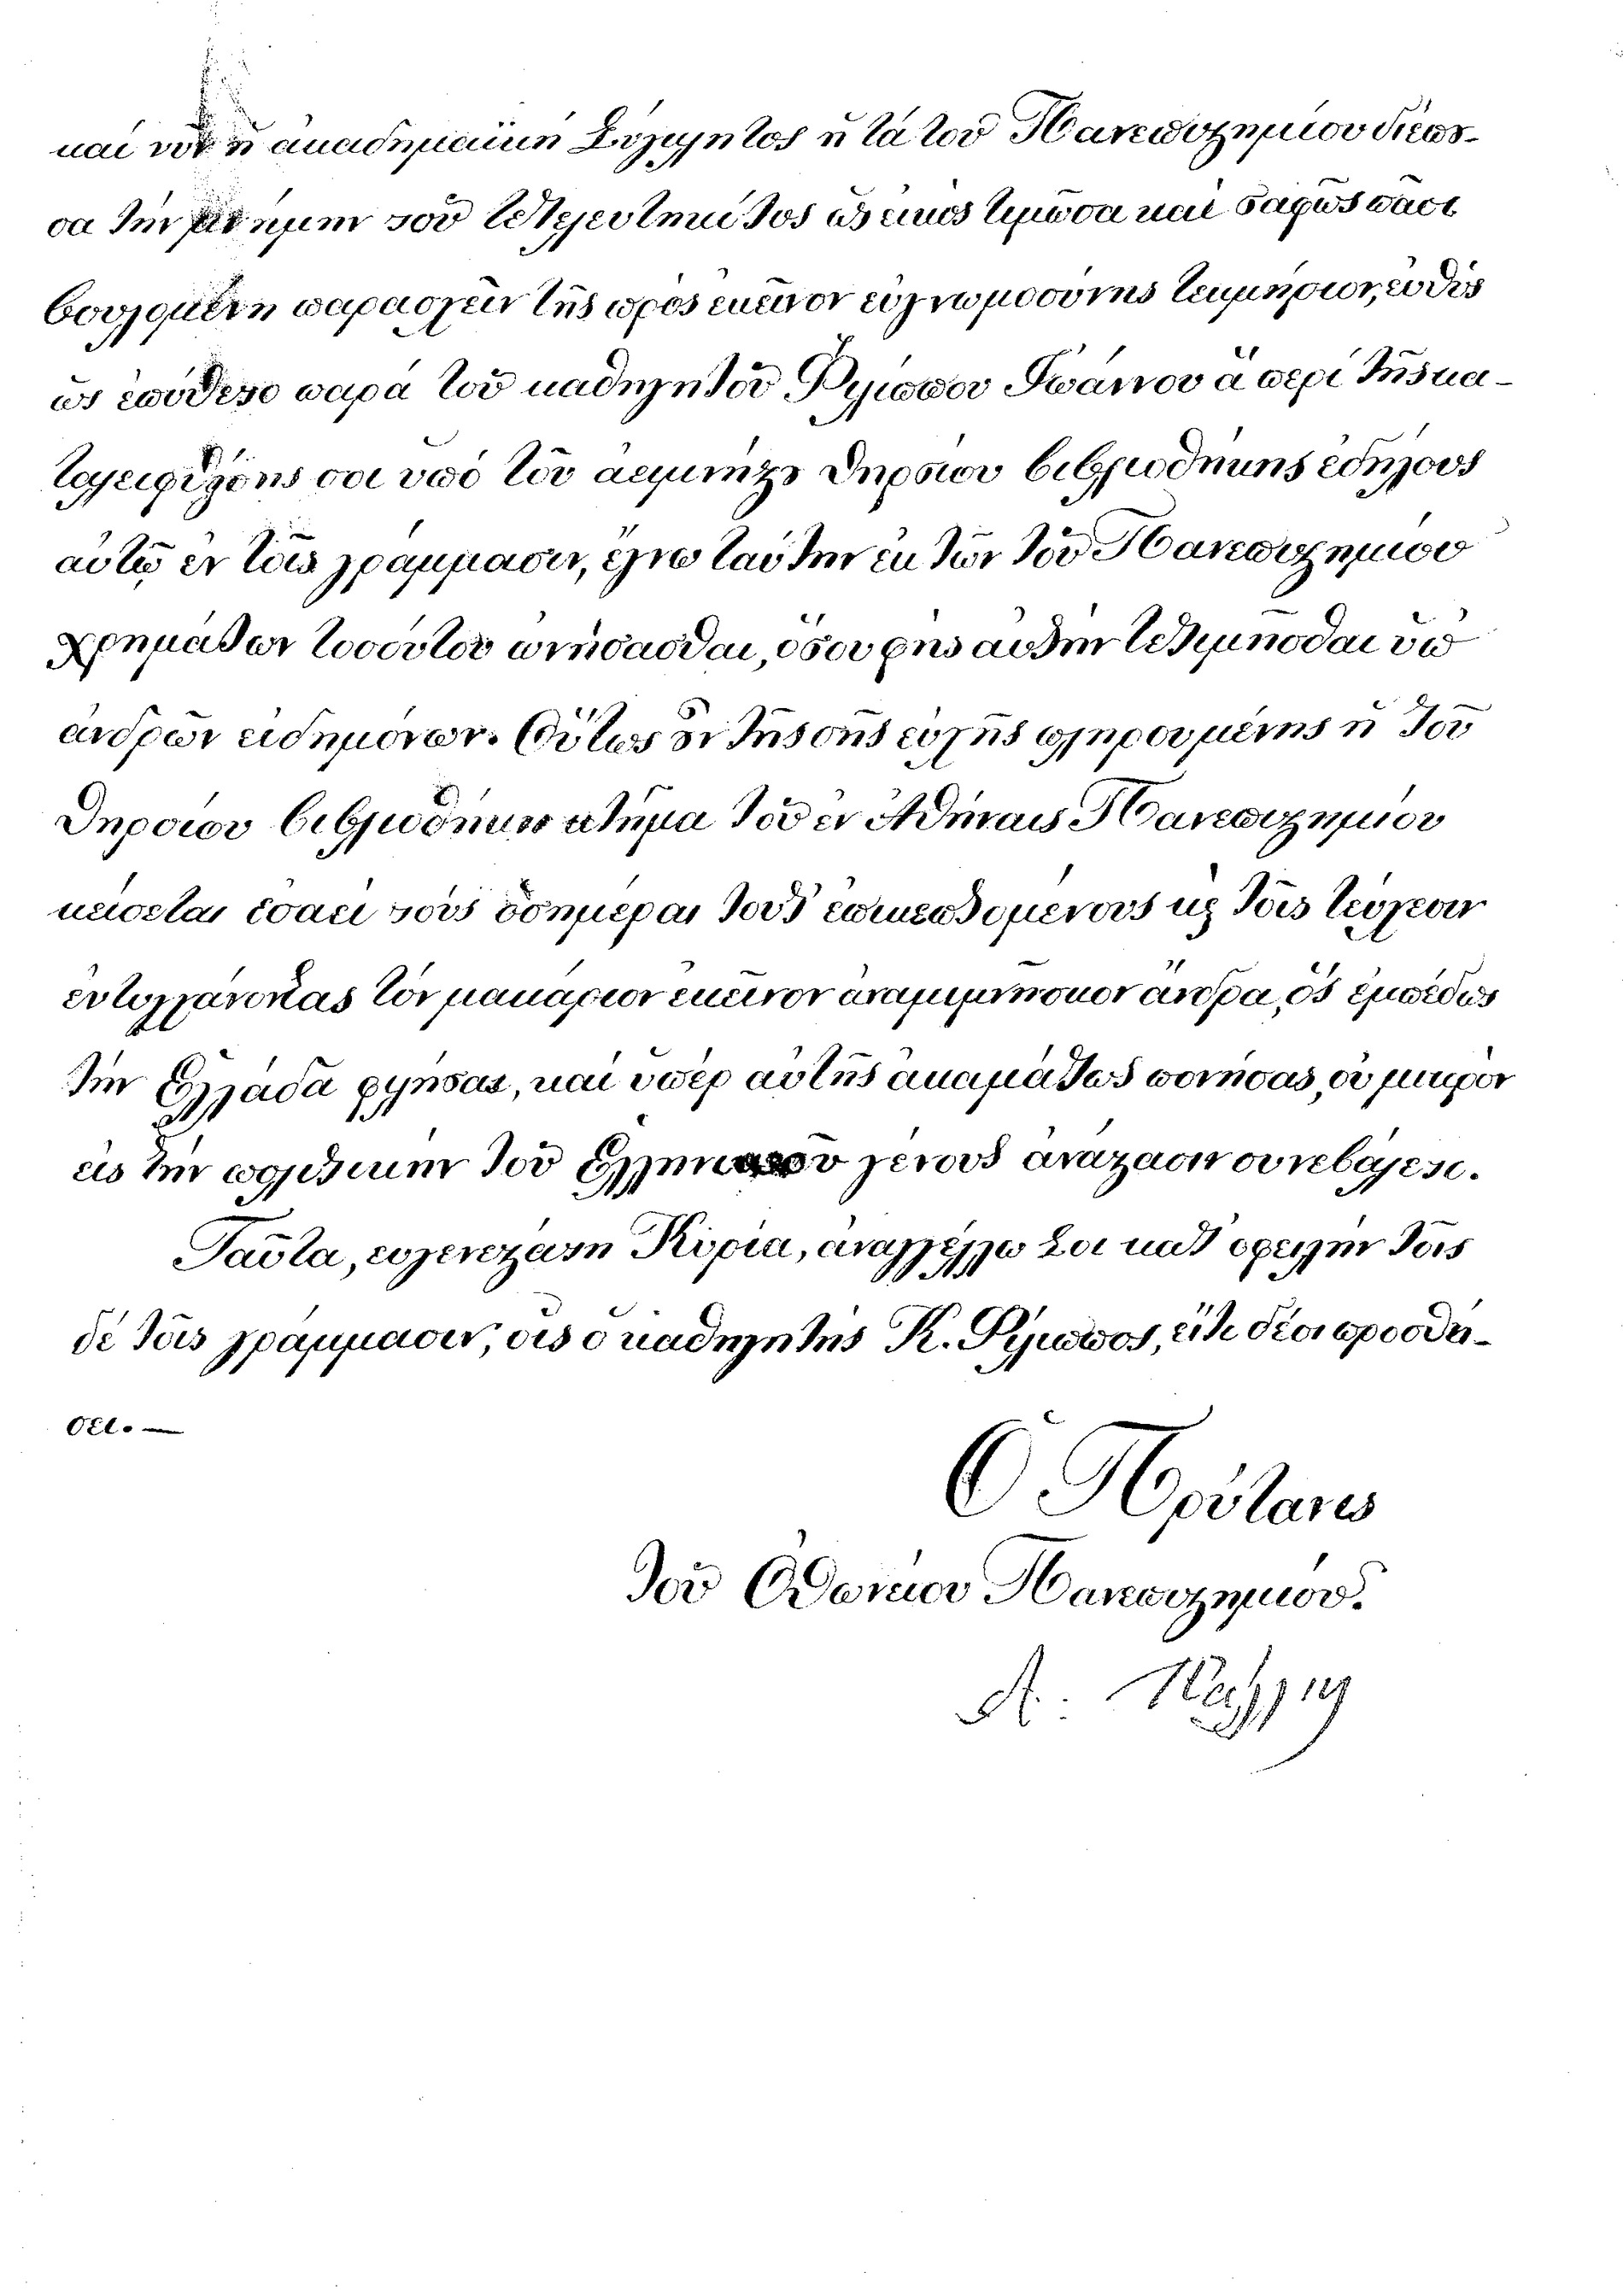 καὶ νῦν ἡ ἀκαδημαϊκὴ Σύγκλητος ἡ τὰ τοῦ Πανεπιστημίου διέπου-
σα τὴν μνήμην τοῦ τετελευτηκότος ὡς εἰκὸς τιμῶσα καὶ σαφὲς πᾶσι
βουλομένη παρασχεῖν τῆς πρὸς ἐκεῖνον εὐγνωμοσύνης τεκμήριον, εὐθὺς
ὡς ἐπύθετο παρὰ τοῦ καθηγητοῦ Φιλίππου Ἰωάννου ἃ περὶ τῆς κα-
ταλειφθείσης σοι ὑπὸ τοῦ ἀειμνήστου Δημοσίου βιβλιοθήκης ἐδήλους
αὐτῷ ἐν τοῖς γράμμασιν, ἔγνω ταύτην ἐκ τῶν τοῦ Πανεπιστημίου
χρημάτων τοσούτου ὠνήσασθαι, ὅσου φῂς αὐτὴν τετιμῆσθαι ὑπ'
ἀνδρῶν εἰδημόνων. Οὕτως οὖν τῆς σῆς εὐχῆς πληρουμένης ἡ τοῦ
Δημοσίου βιβλιοθήκη κτῆμα τοῦ ἐν Ἀθήναις Πανεπιστημίου
κείσεται ἐσαεὶ τοὺς ὁσημέραι τοὺς ἐπισκεπτομένους καὶ τοῖς τεύχεσιν
ἐντυγχάνοντας τὸν μακάριον ἐκεῖνον ἀναμιμνήσκον ἄνδρα, ὃς ἐμπέδως
τὴν Ἑλλάδα φιλήσας, καὶ ὑπὲρ αὐτῆς ἀκαμάτως πονήσας, οὐ μικρὸν
εἰς τὴν πολιτικὴν τοῦ Ἑλληνικοῦ γένους ἀνάστασιν συνεβάλετο.
Ταῦτα, εὐγενεστάτη Κυρία, ἀναγγέλλω Σοι κατ' ὀφειλὴν τοῖς
δὲ τοῖς γράμμασιν, οἷς ὁ καθηγητὴς Κ. Φίλιππος, εἴ τι δέοι προσθή-
σει. —
Ὁ Πρύτανις
τοῦ Ὀθωνείου Πανεπιστημίου.